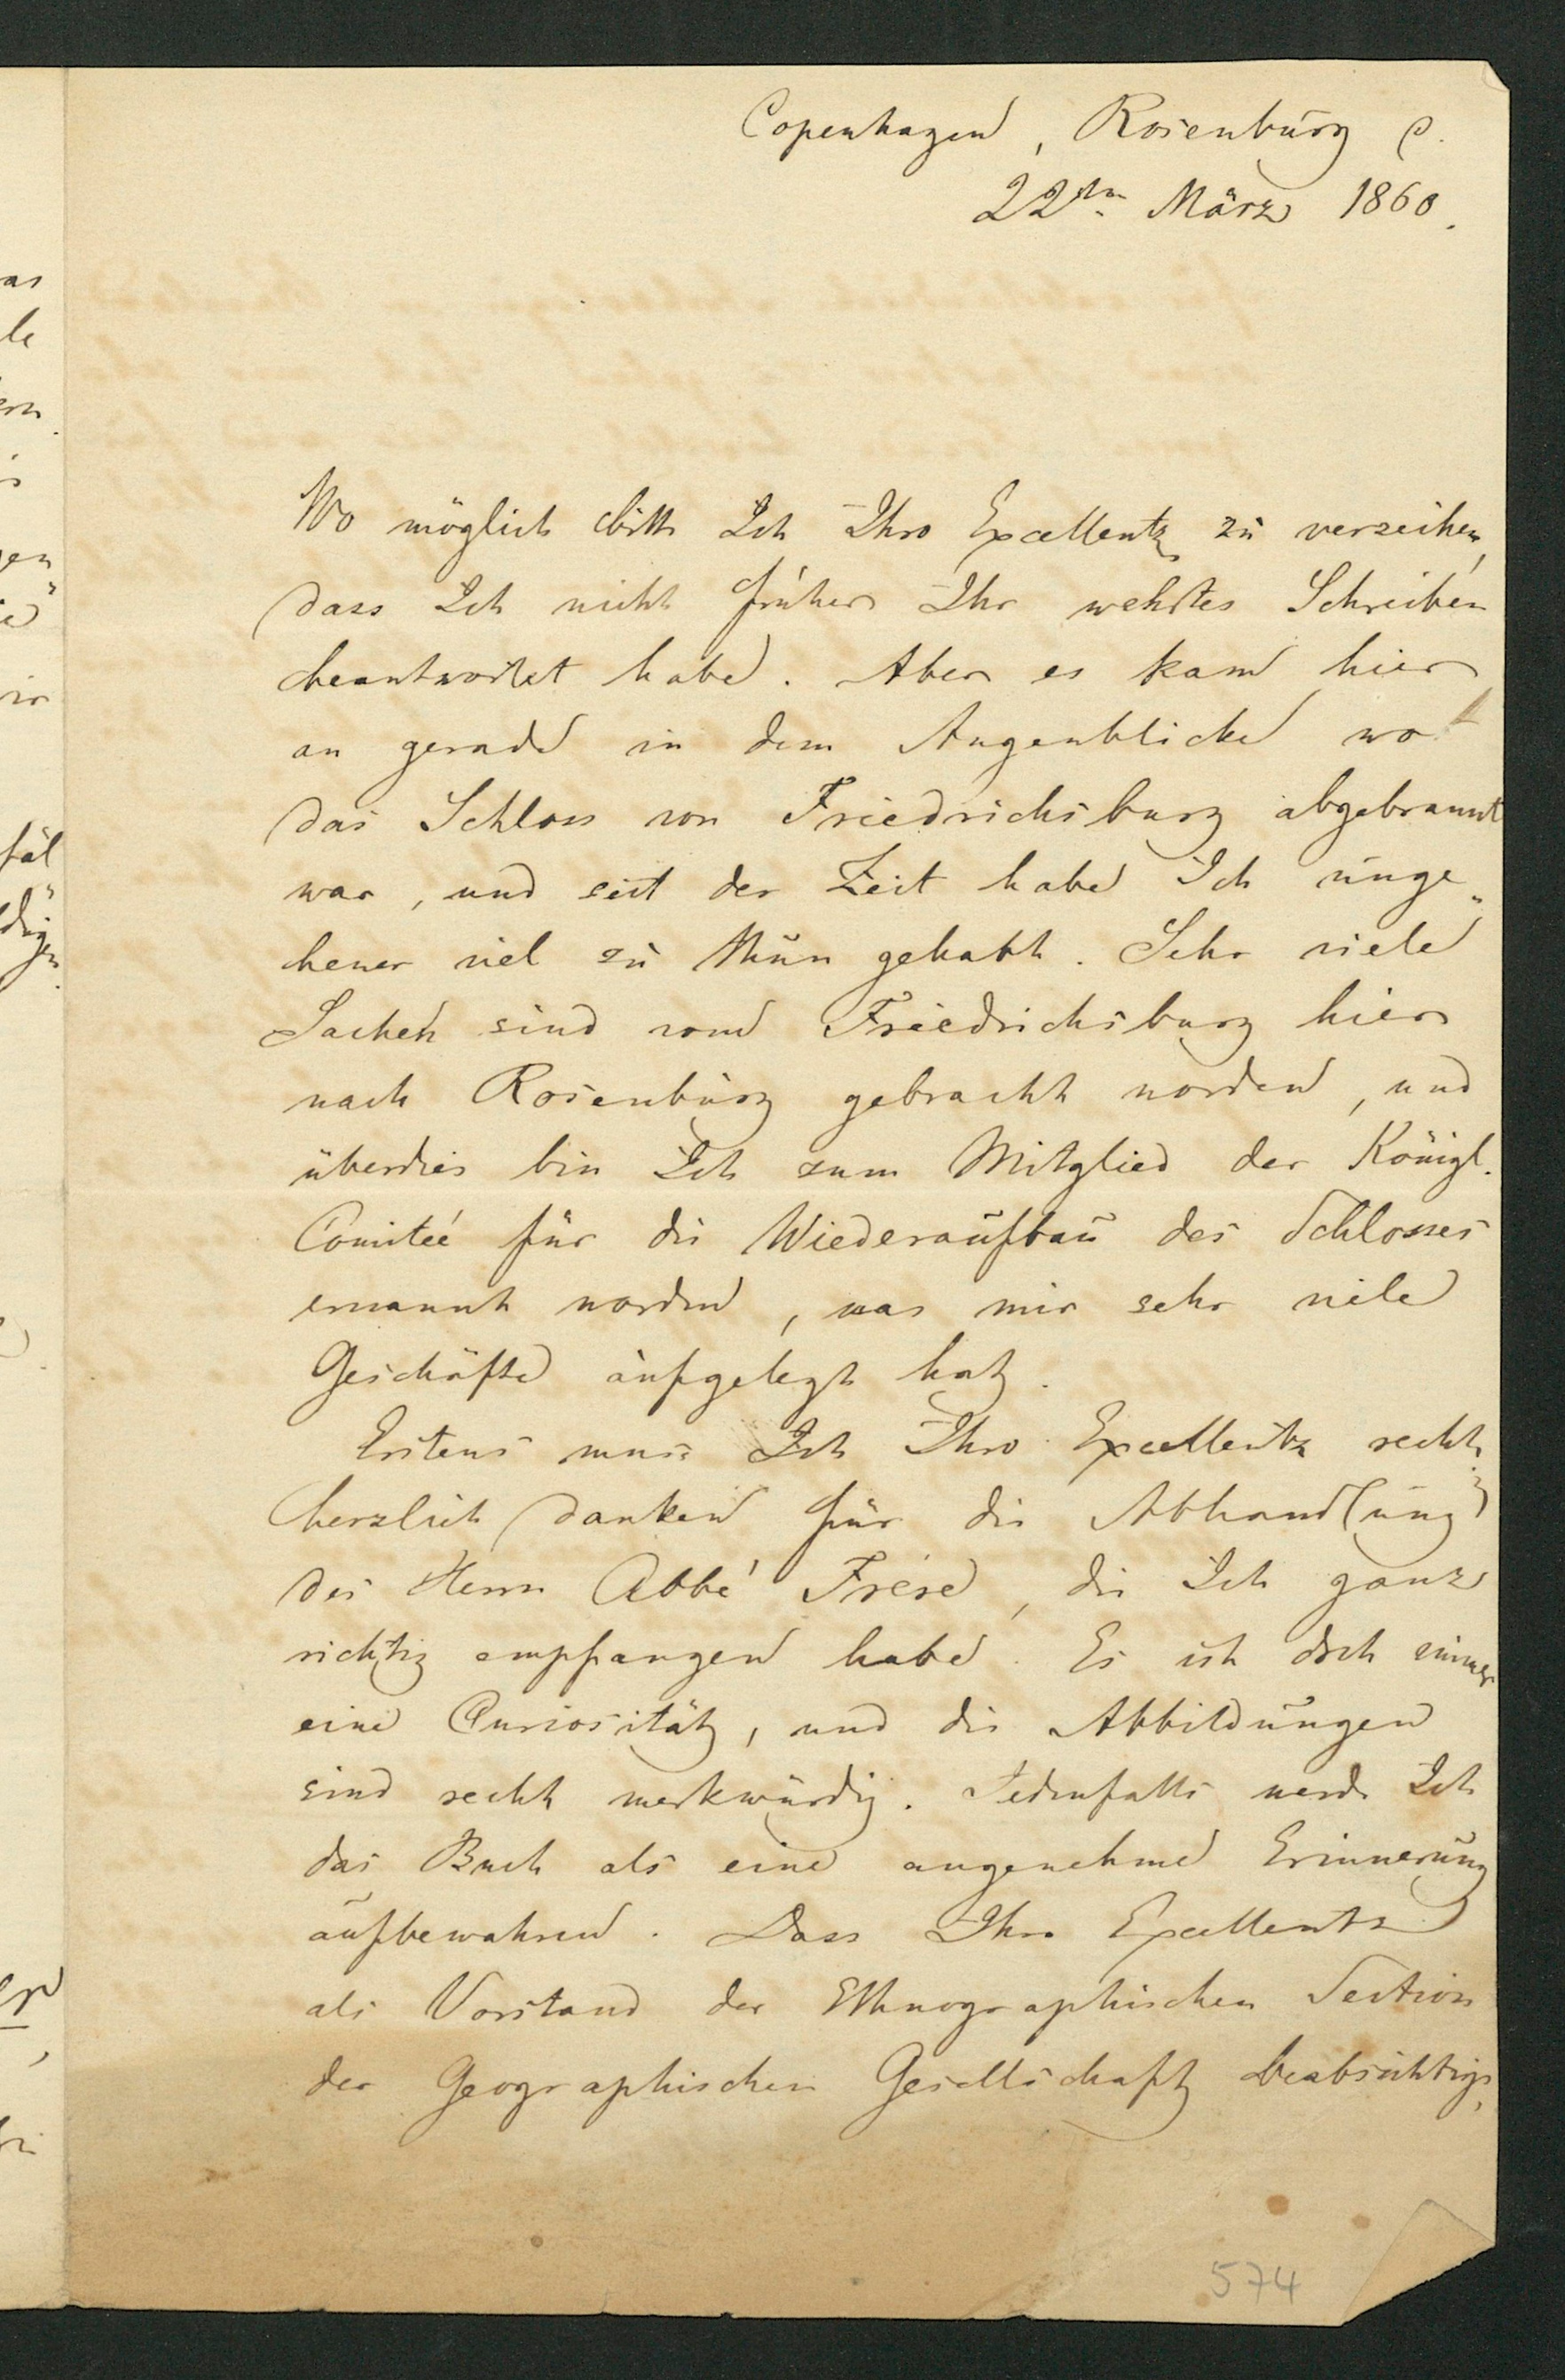 Copenhagen, Rosenburg d.
22ten März 1860.
Wo möglich bitte Ich Ihro Excellentz zu verzeihen,
dass Ich nicht früher Ihr wehrtes Schreiben
beantwortet habe. Aber es kam hier
an gerade in dem Augenblicke wo
das Schloss von Friedrichsburg abgebrannt
war, und seit der Zeit habe Ich unge„
heuer viel zu thun gehabt. Sehr viele
Sachen sind von Friedrichsburg hier
nach Rosenburg gebracht worden, und
überdies bin Ich zum Mitglied der Königl.
Comiteé für die Wiederaufbau des Schlosses
ernannt worden, was mir sehr viele
Geschäfte aufgelegt hat.
Erstens muss Ich Ihro Excellentz recht
herzlich danken für die Abhandlung
des Herrn Abbé Frére, die Ich ganz
richtig empfangen habe. Es ist doch immer
eine Curiosität, und die Abbildungen
sind recht merkwürdig. Jedenfalls werde Ich
das Buch als eine angenehme Erinnerung
aufbewahren. Dass Ihro Excellentz
als Vorstand der Ethnographischen Section
der Geographischen Gesellschaft beabsichtigt,
574